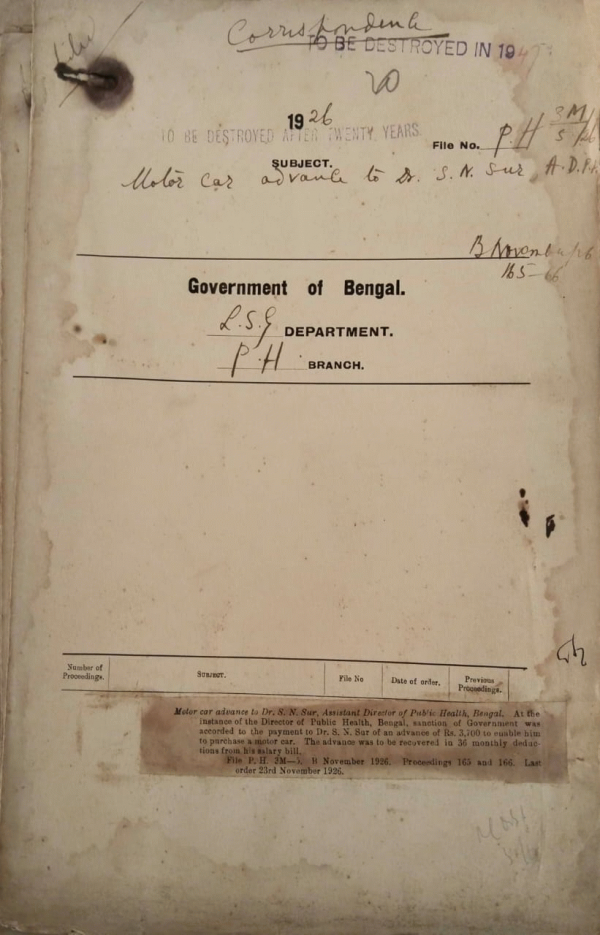 Correspondence
TO BE DESTROYED IN 19
20
1926
TO BE DESTROYED AFTER TWENTY YEARS.
File No. P. H
SUBJECT.
Motor car advance to Dr. S. N. Sur, A.D.P.H.
B November/26
165-66
Government of Bengal.
L.S.G DEPARTMENT.
P.H. BRANCH.
Number of Proceedings. SUBJECT. File No Date of order. Previous Proceedings.
Motor car advance to Dr. S. N. Sur, Assistant Director of Public Health, Bengal. At the
instance of the Director of Public Health, Bengal, sanction of Government was
accorded to the payment to Dr. S. N. Sur of an advance of Rs. 3,700 to enable him
to purchase a motor car. The advance was to be recovered in 36 monthly deduc-
tions from his salary bill.
File P. H. 2M—5, B November 1926. Proceedings 165 and 166. Last
order 23rd November 1926.